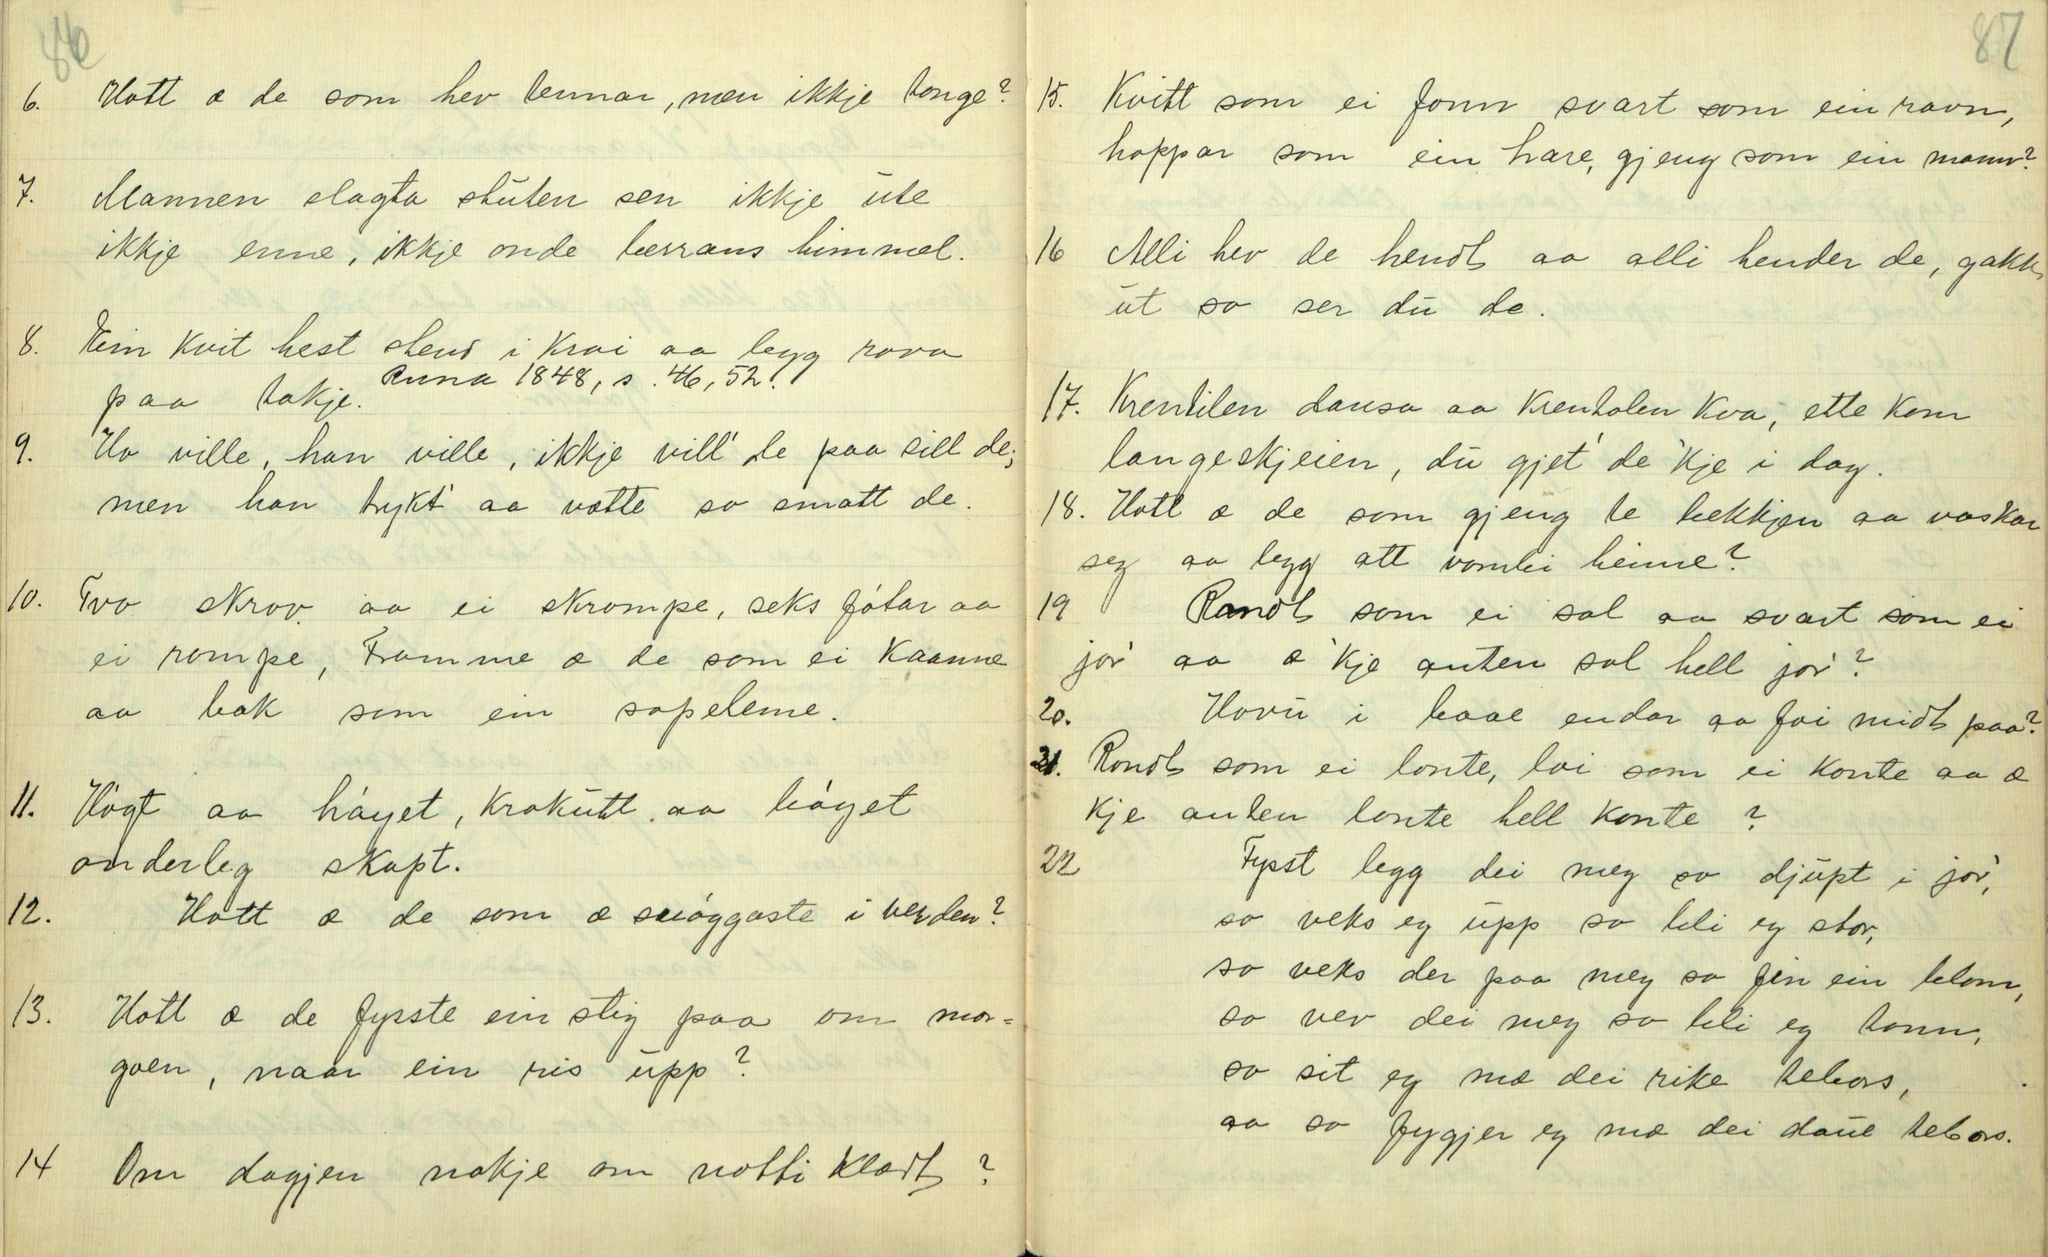 86
6. Hott æ de som hev tennar, men ikkje tonge?
7. Mannen slagta stuten sen ikkje ute
ikkje enne, ikkje onde berrans himmel.
8. Ein kvit hest stend i krai aa legg rova
paa takje. Runa 1848, s. 46, 52.
9. Ho ville, han ville, ikkje vill' de paa till de;
men han trykt' aa vætte so smatt de.
10. Tvo skrov aa ei skrompe, seks fótar aa
ei rompe, Framme æ de som ei kaanne
aa bak som ein sopelime.
11. Høgt aa høyet, krokutt aa bøyet
onderleg skapt.
12. Hott æ de som æ snøggaste i verden?
13. Hott æ de fysste ein stig paa om mor=
goen, naar ein ris upp?
14 Om dagjen nakje om notti klædt?
87
15. Kvitt som ei fonn svart som ein ravn,
hoppar som ein hare, gjeng som ein mann?
16 Alli hev de hendt aa alli hender de, gakk
ut so ser du de.
17. Krentilen dansa aa krentalen kva, ette kom
langeskjeien, du gjet' de 'kje i dag.
18. Hott æ de som gjeng te bekkjen aa vaskar
seg aa legg att vombi heime?
19 Randt som ei sol aa svart som ei
jor' aa æ 'kje anten sol hell jor'?
20. Hovu i baae endar aa foi midt paa?
21. Rondt som ei lonte, loi som ei konte aa æ
kje anten lonte hell konte?
22 Fysst legg dei meg so djupt i jor',
so veks eg upp so bli eg stor,
so veks der paa meg so fin ein blom,
so rev dei meg so bli eg tom,
so sit eg mæ dei rike tebors,
aa so fygjer eg mæ dei daue tebors.